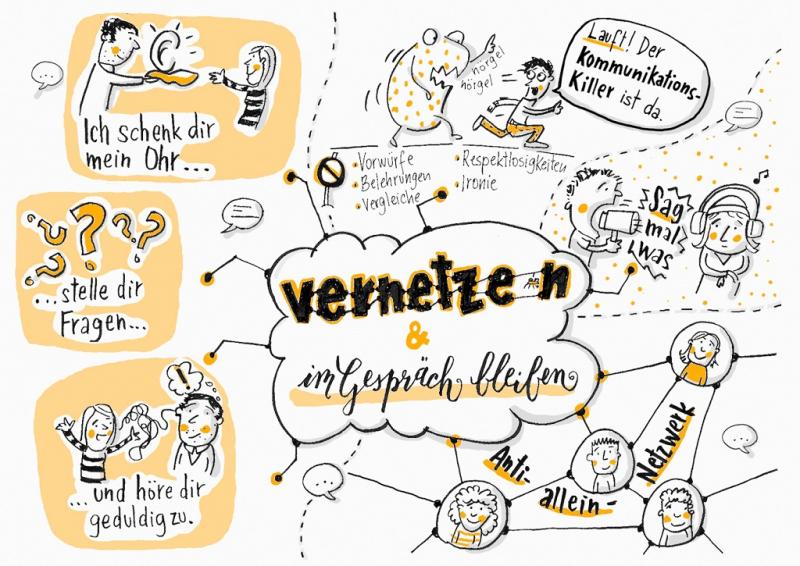 Ich schenk dir
mein Ohr...
...stelle dir
Fragen...
!
...und höre dir
geduldig zu.
nörgel
nörgel
Lauft! Der
Kommunikations-
Killer ist da.
• Vorwürfe
• Belehrungen
• Vergleiche
• Respektlosigkeiten
• Ironie
Sag
mal
was
vernetzen
&
im Gespräch bleiben
Anti-
allein-
Netzwerk